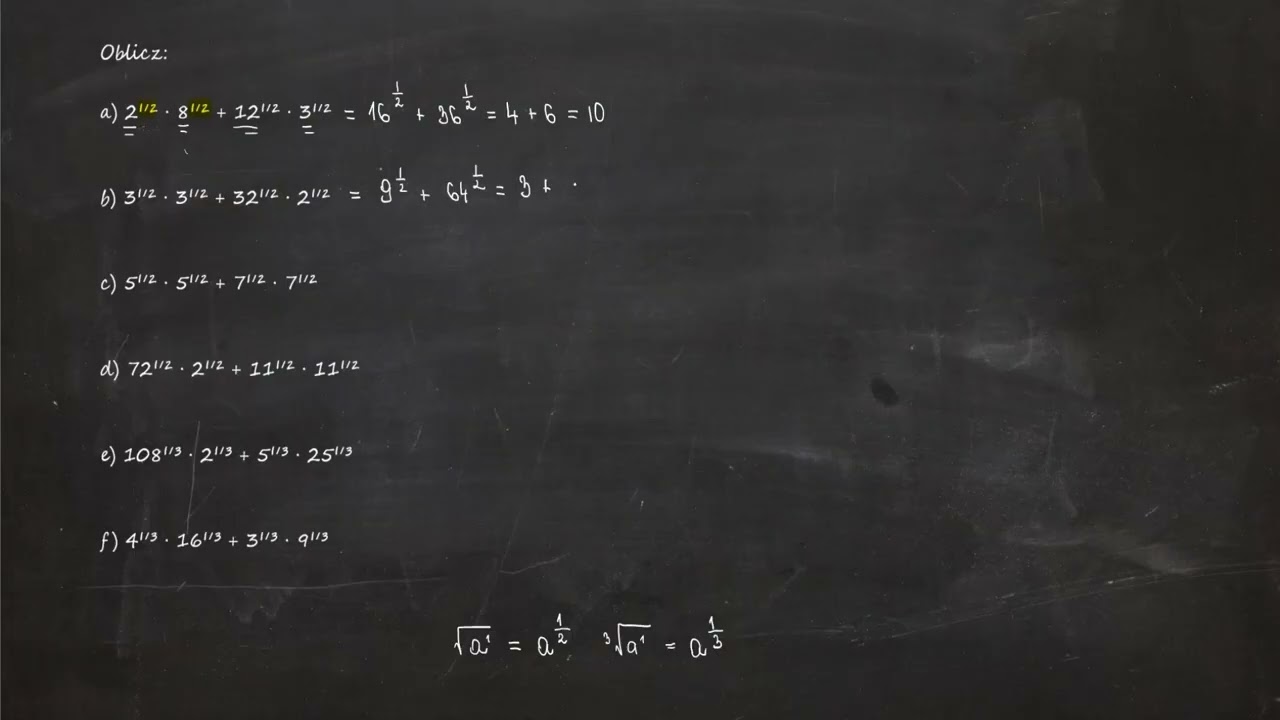 Oblicz:
a) 2^1/2 · 8^1/2 + 12^1/2 · 3^1/2 = 16^1/2 + 36^1/2 = 4 + 6 = 10
b) 3^1/2 · 3^1/2 + 32^1/2 · 2^1/2 = 9^1/2 + 64^1/2 = 3 +
c) 5^1/2 · 5^1/2 + 7^1/2 · 7^1/2
d) 72^1/2 · 2^1/2 + 11^1/2 · 11^1/2
e) 108^1/3 · 2^1/3 + 5^1/3 · 25^1/3
f) 4^1/3 · 16^1/3 + 3^1/3 · 9^1/3
√a¹ = a^1/2 ³√a¹ = a^1/3